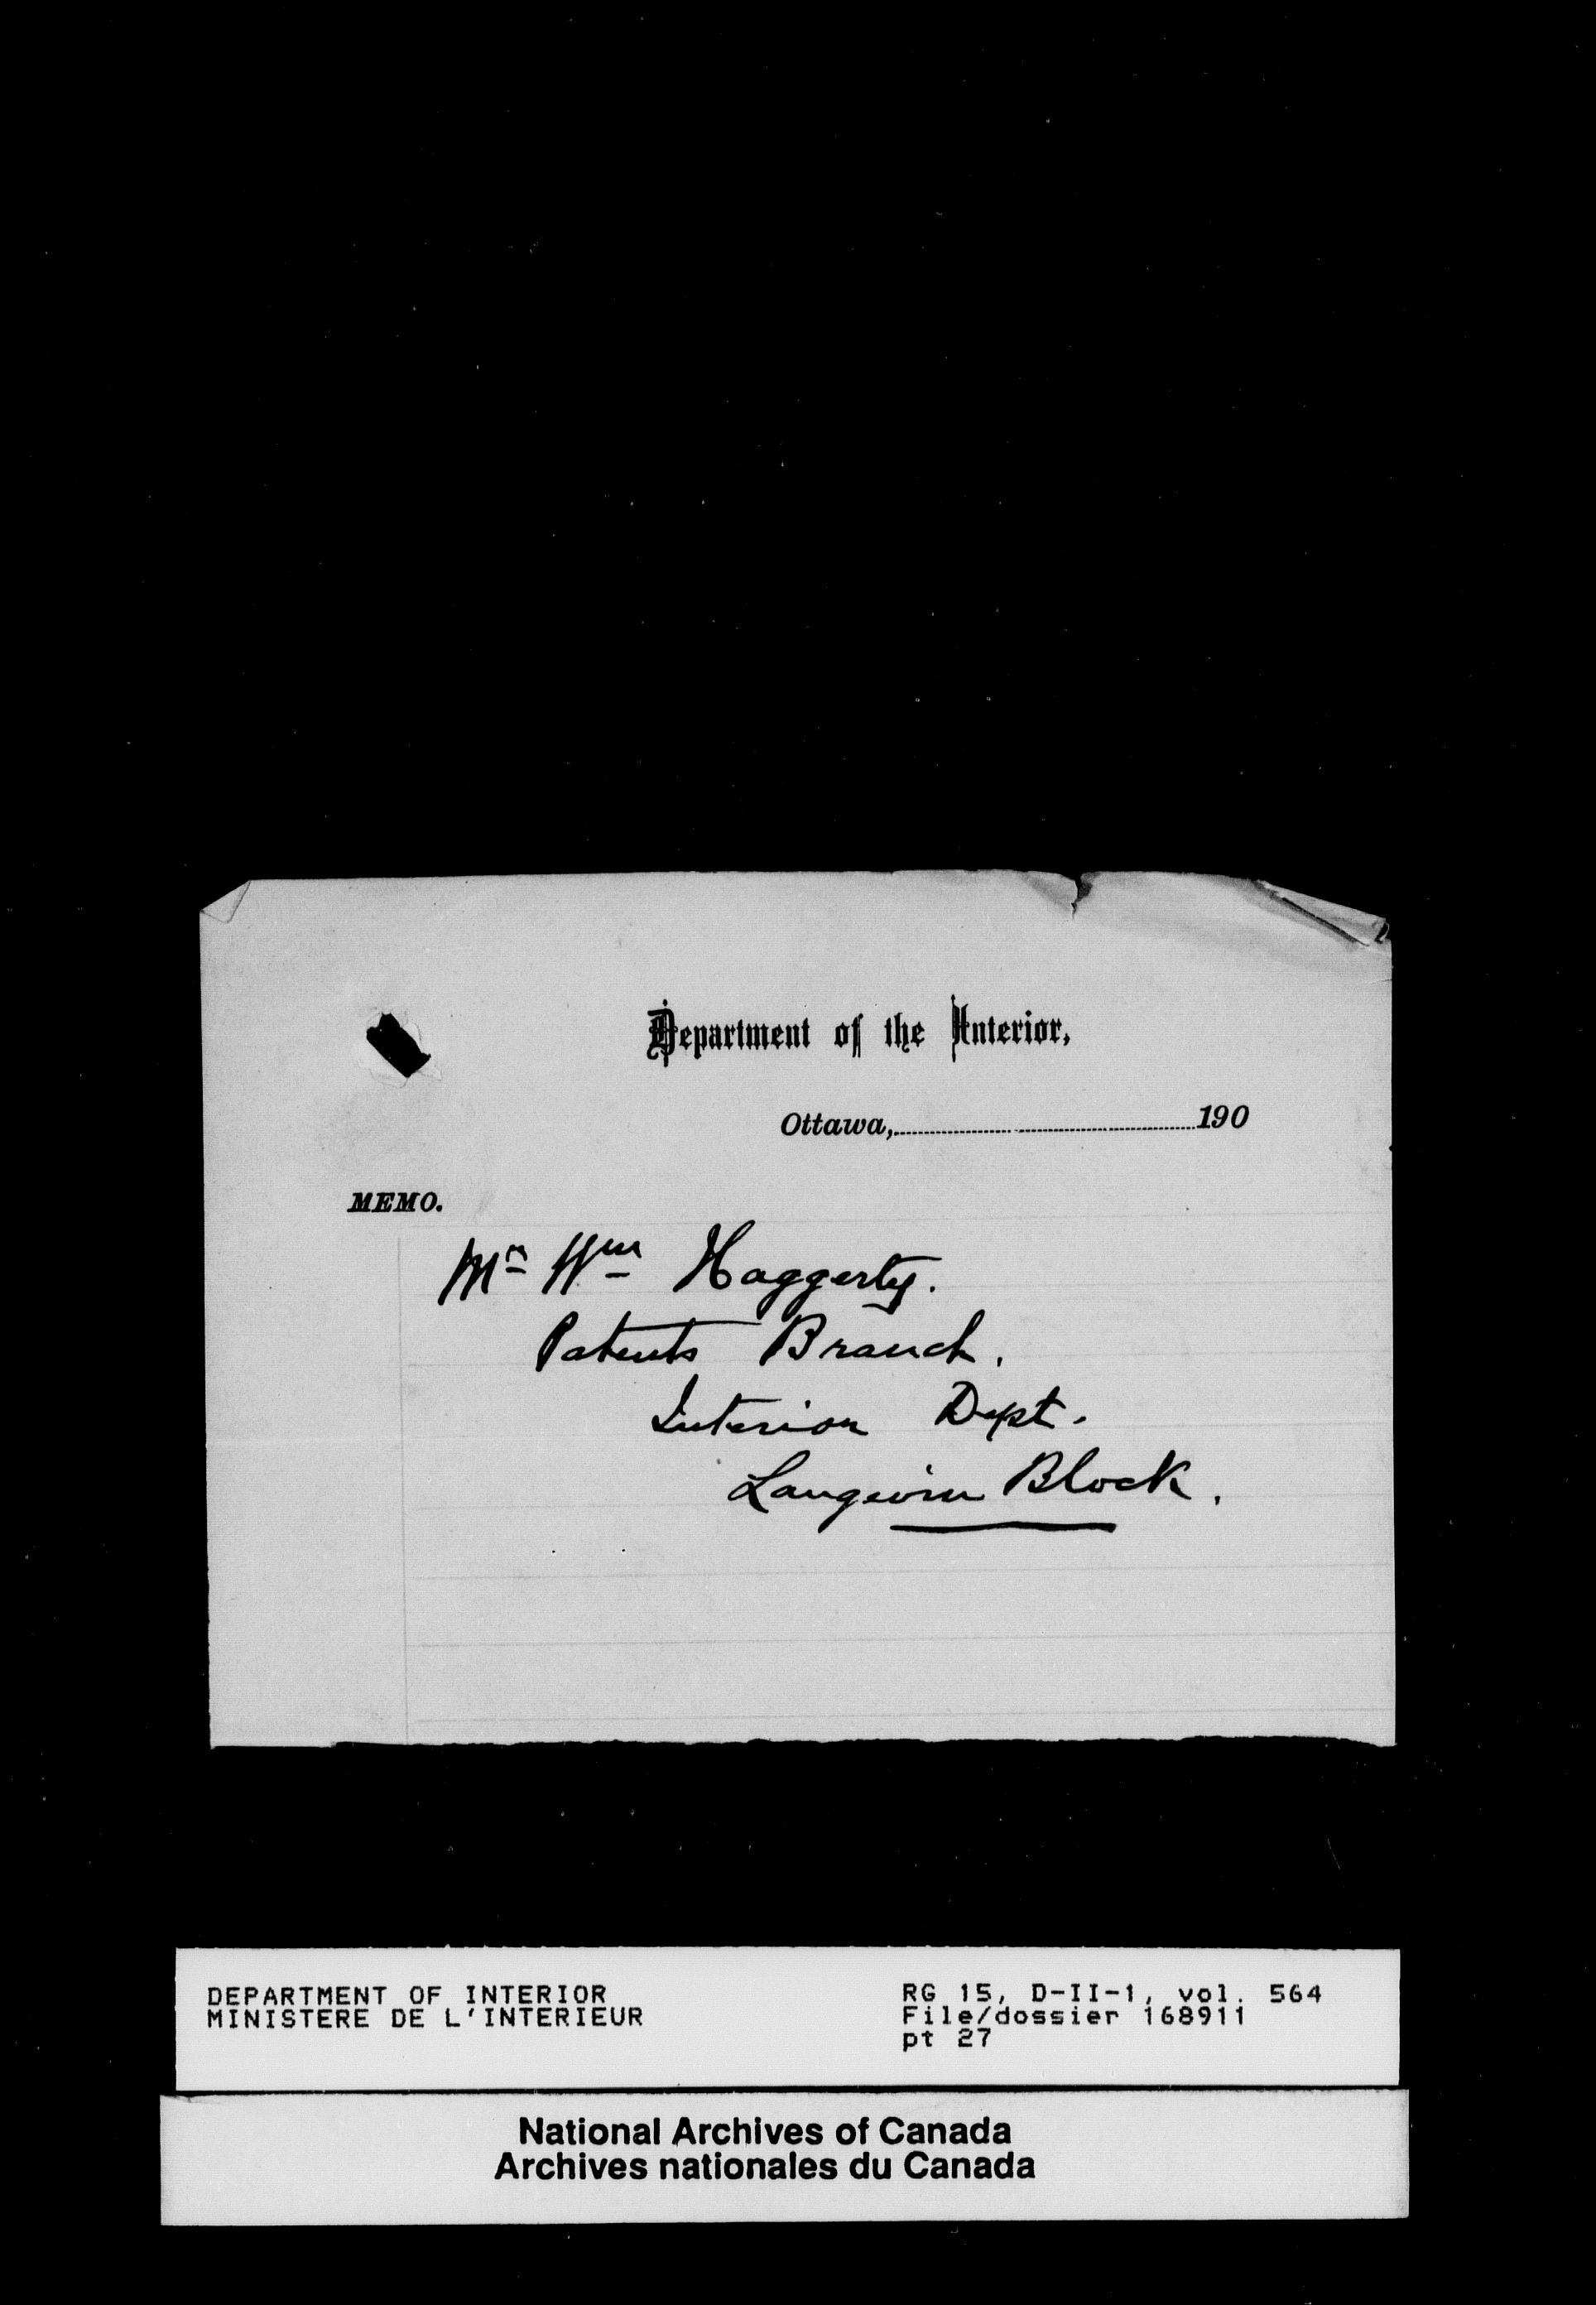 Department of the Interior,
Ottawa, 190
MEMO.
Mr Wm Haggerty.
Patents Branch.
Interior Dept.
Langevin Block.
DEPARTMENT OF INTERIOR
MINISTERE DE L'INTERIEUR
RG 15, D-II-1, vol. 564
File/dossier 168911
pt 27
National Archives of Canada
Archives nationales du Canada